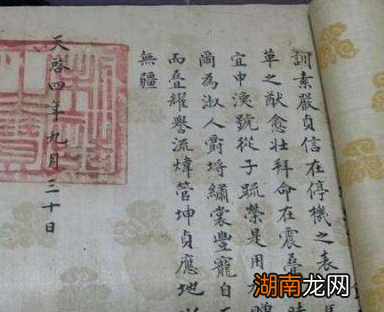 訓素嚴貞信在停機之表
草之猷愈壯拜命在震疊時
宜申渙號從子疏榮是用
爾為淑人爵埒繡裳豐寵自
而叠耀譽流煒管坤貞應地
無疆
天啓四年九月三十日
湖南龙网